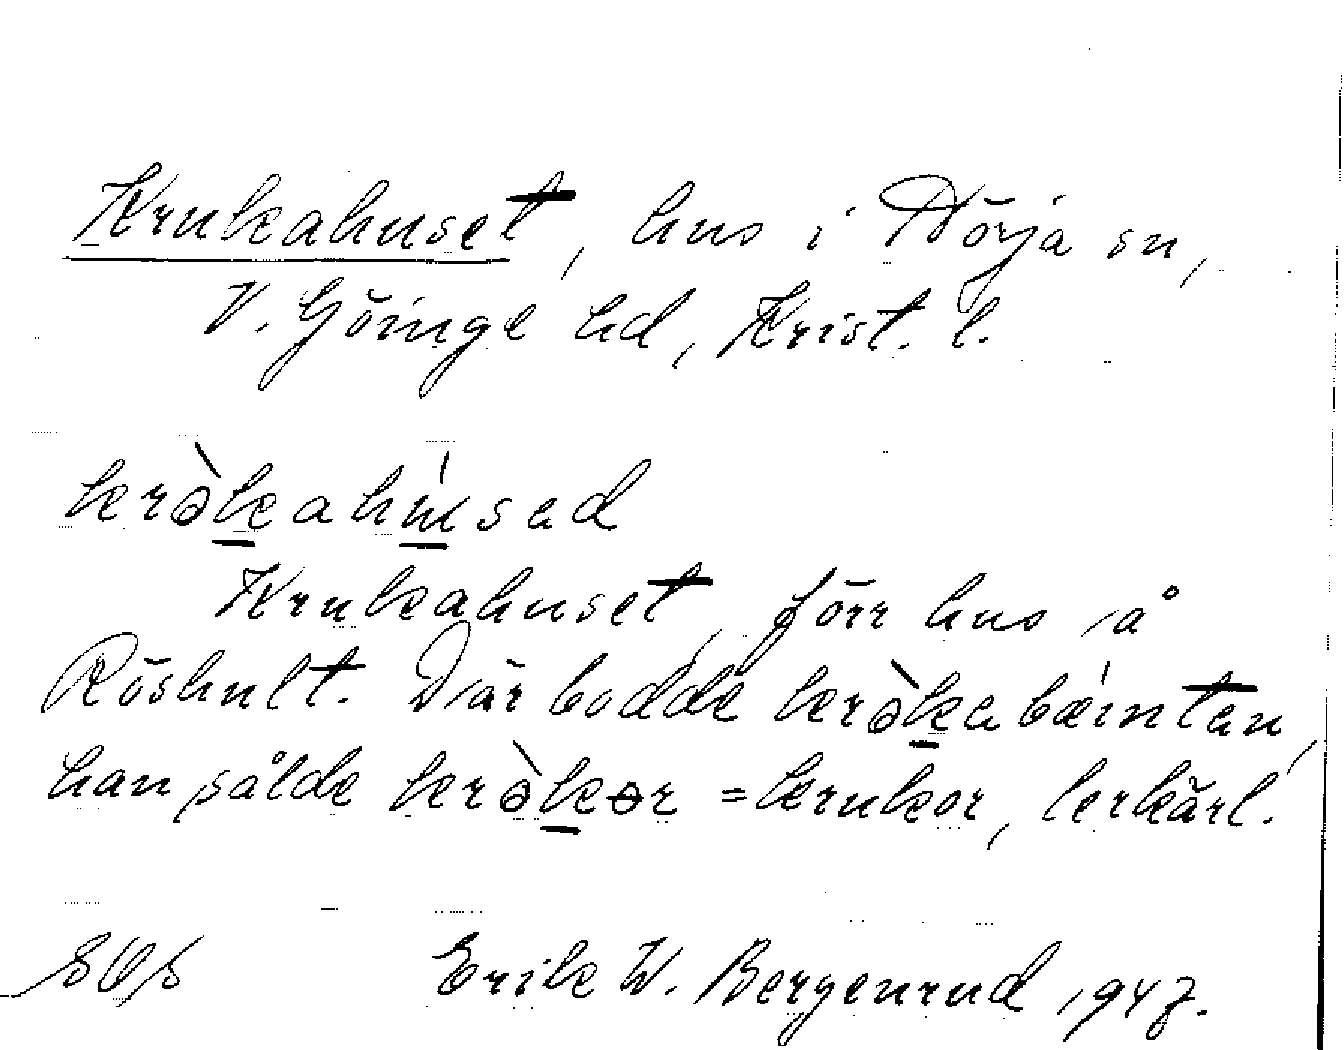 Krukahuset, hus i Nörja sn,
V. Göinge hd, Krist. l.
krə̀kahu̇́sad
Krukahuset, förr hus å
Röshult. Där bodde krə̀kabæ̇́intan,
han sålde krə̀kər = krukor, lerkärl.
Erik W. Bergenrud 1947.